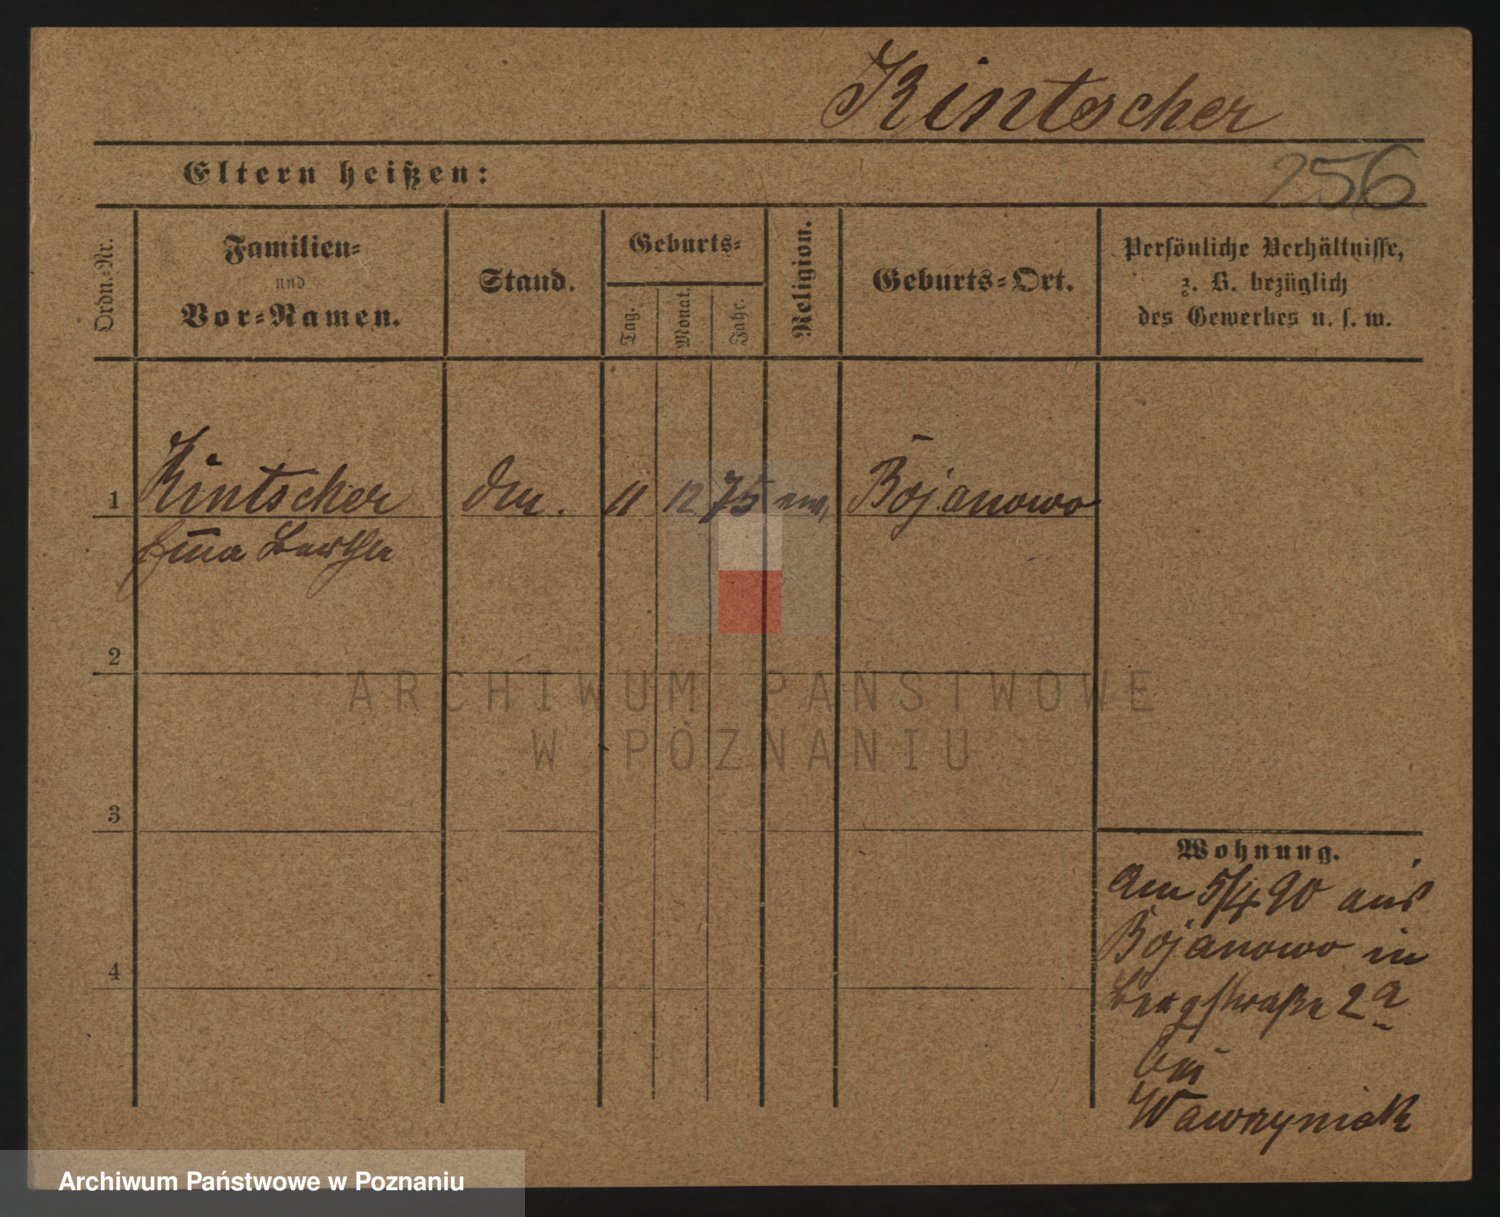 Kintscher
Eltern heißen:
256
Ordn.-Nr.
Familien-
und
Vor-Namen.
Stand.
Geburts-
Tag.
Monat.
Jahr.
Religion.
Geburts-Ort.
Persönliche Verhältnisse,
z. B. bezüglich
des Gewerbes u. s. w.
1 Kintscher 11 12 75 Bojanowo
Bertha
2
3
4
Wohnung.
Am 5/4 90 aus
Bojanowo in
Bergstraße 2a
bei
Wawrzyniak
ARCHIWUM PAŃSTWOWE
W POZNANIU
Archiwum Państwowe w Poznaniu